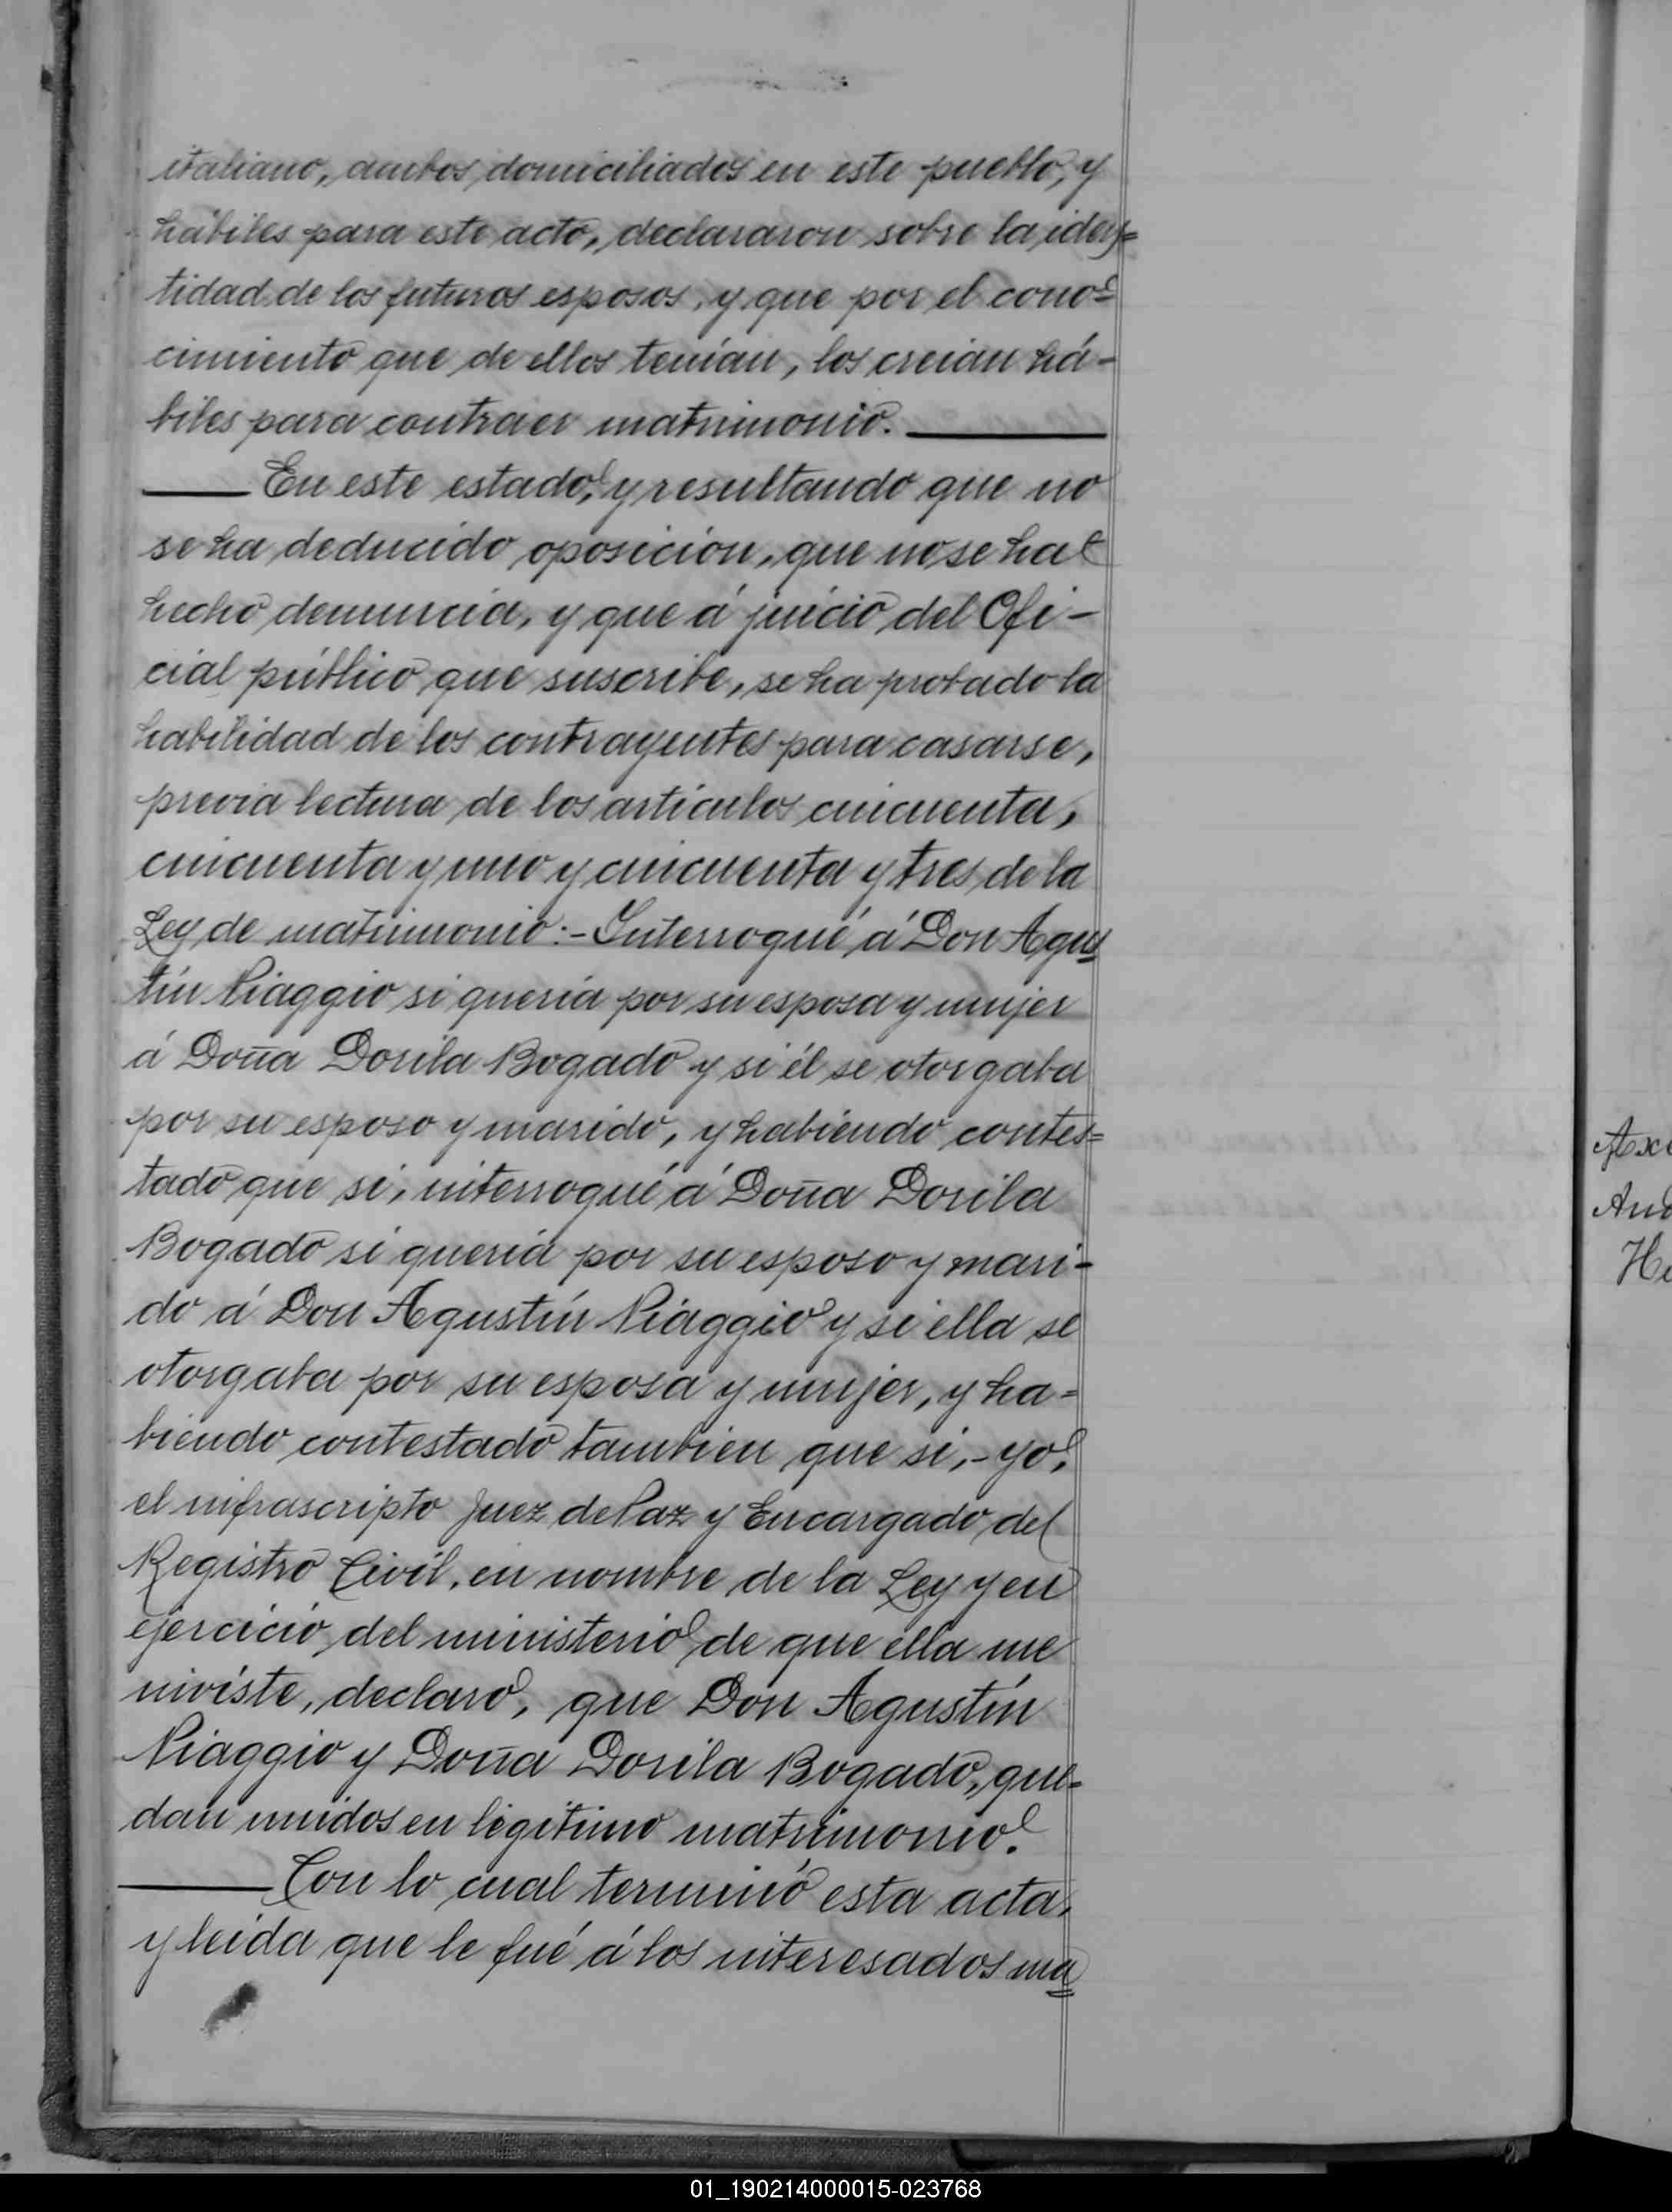 italiano, ambos domiciliados en este pueblo, y
hábiles para este acto, declararon sobre la iden=
tidad de los futuros esposos, y que por el cono=
cimiento que de ellos tenían, los creian há-
biles para contraer matrimonio.
En este estado, y resultando que no
se ha deducido oposición, que no se ha
hecho denuncia, y que á juicio del Ofi-
cial público que suscribe, se ha probado la
habilidad de los contrayentes para casarse,
previa lectura de los artículos cincuenta,
cincuenta y uno y cincuenta y tres de la
Ley de matrimonio:- Interrogué á Don Agus
tín Piaggio si quería por su esposa y mujer
á Doña Dorila Bogado y si él se otorgaba
por su esposo y marido, y habiendo contes=
tado que si, interrogué á Doña Dorila
Bogado si quería por su esposo y mari-
do á Don Agustín Piaggio y si ella se
otorgaba por su esposa y mujer, y ha=
biendo contestado tambien que si,- yo,
el infrascripto Juez de Paz y Encargado del
Registro Civil, en nombre de la Ley y en
ejercicio del ministerio de que ella me
inviste, declaro, que Don Agustín
Piaggio y Doña Dorila Bogado, que-
dan unidos en legítimo matrimonio.
Con lo cual terminó esta acta,
y leida que le fué á los interesados ma
Aud
He
01_190214000015-023768